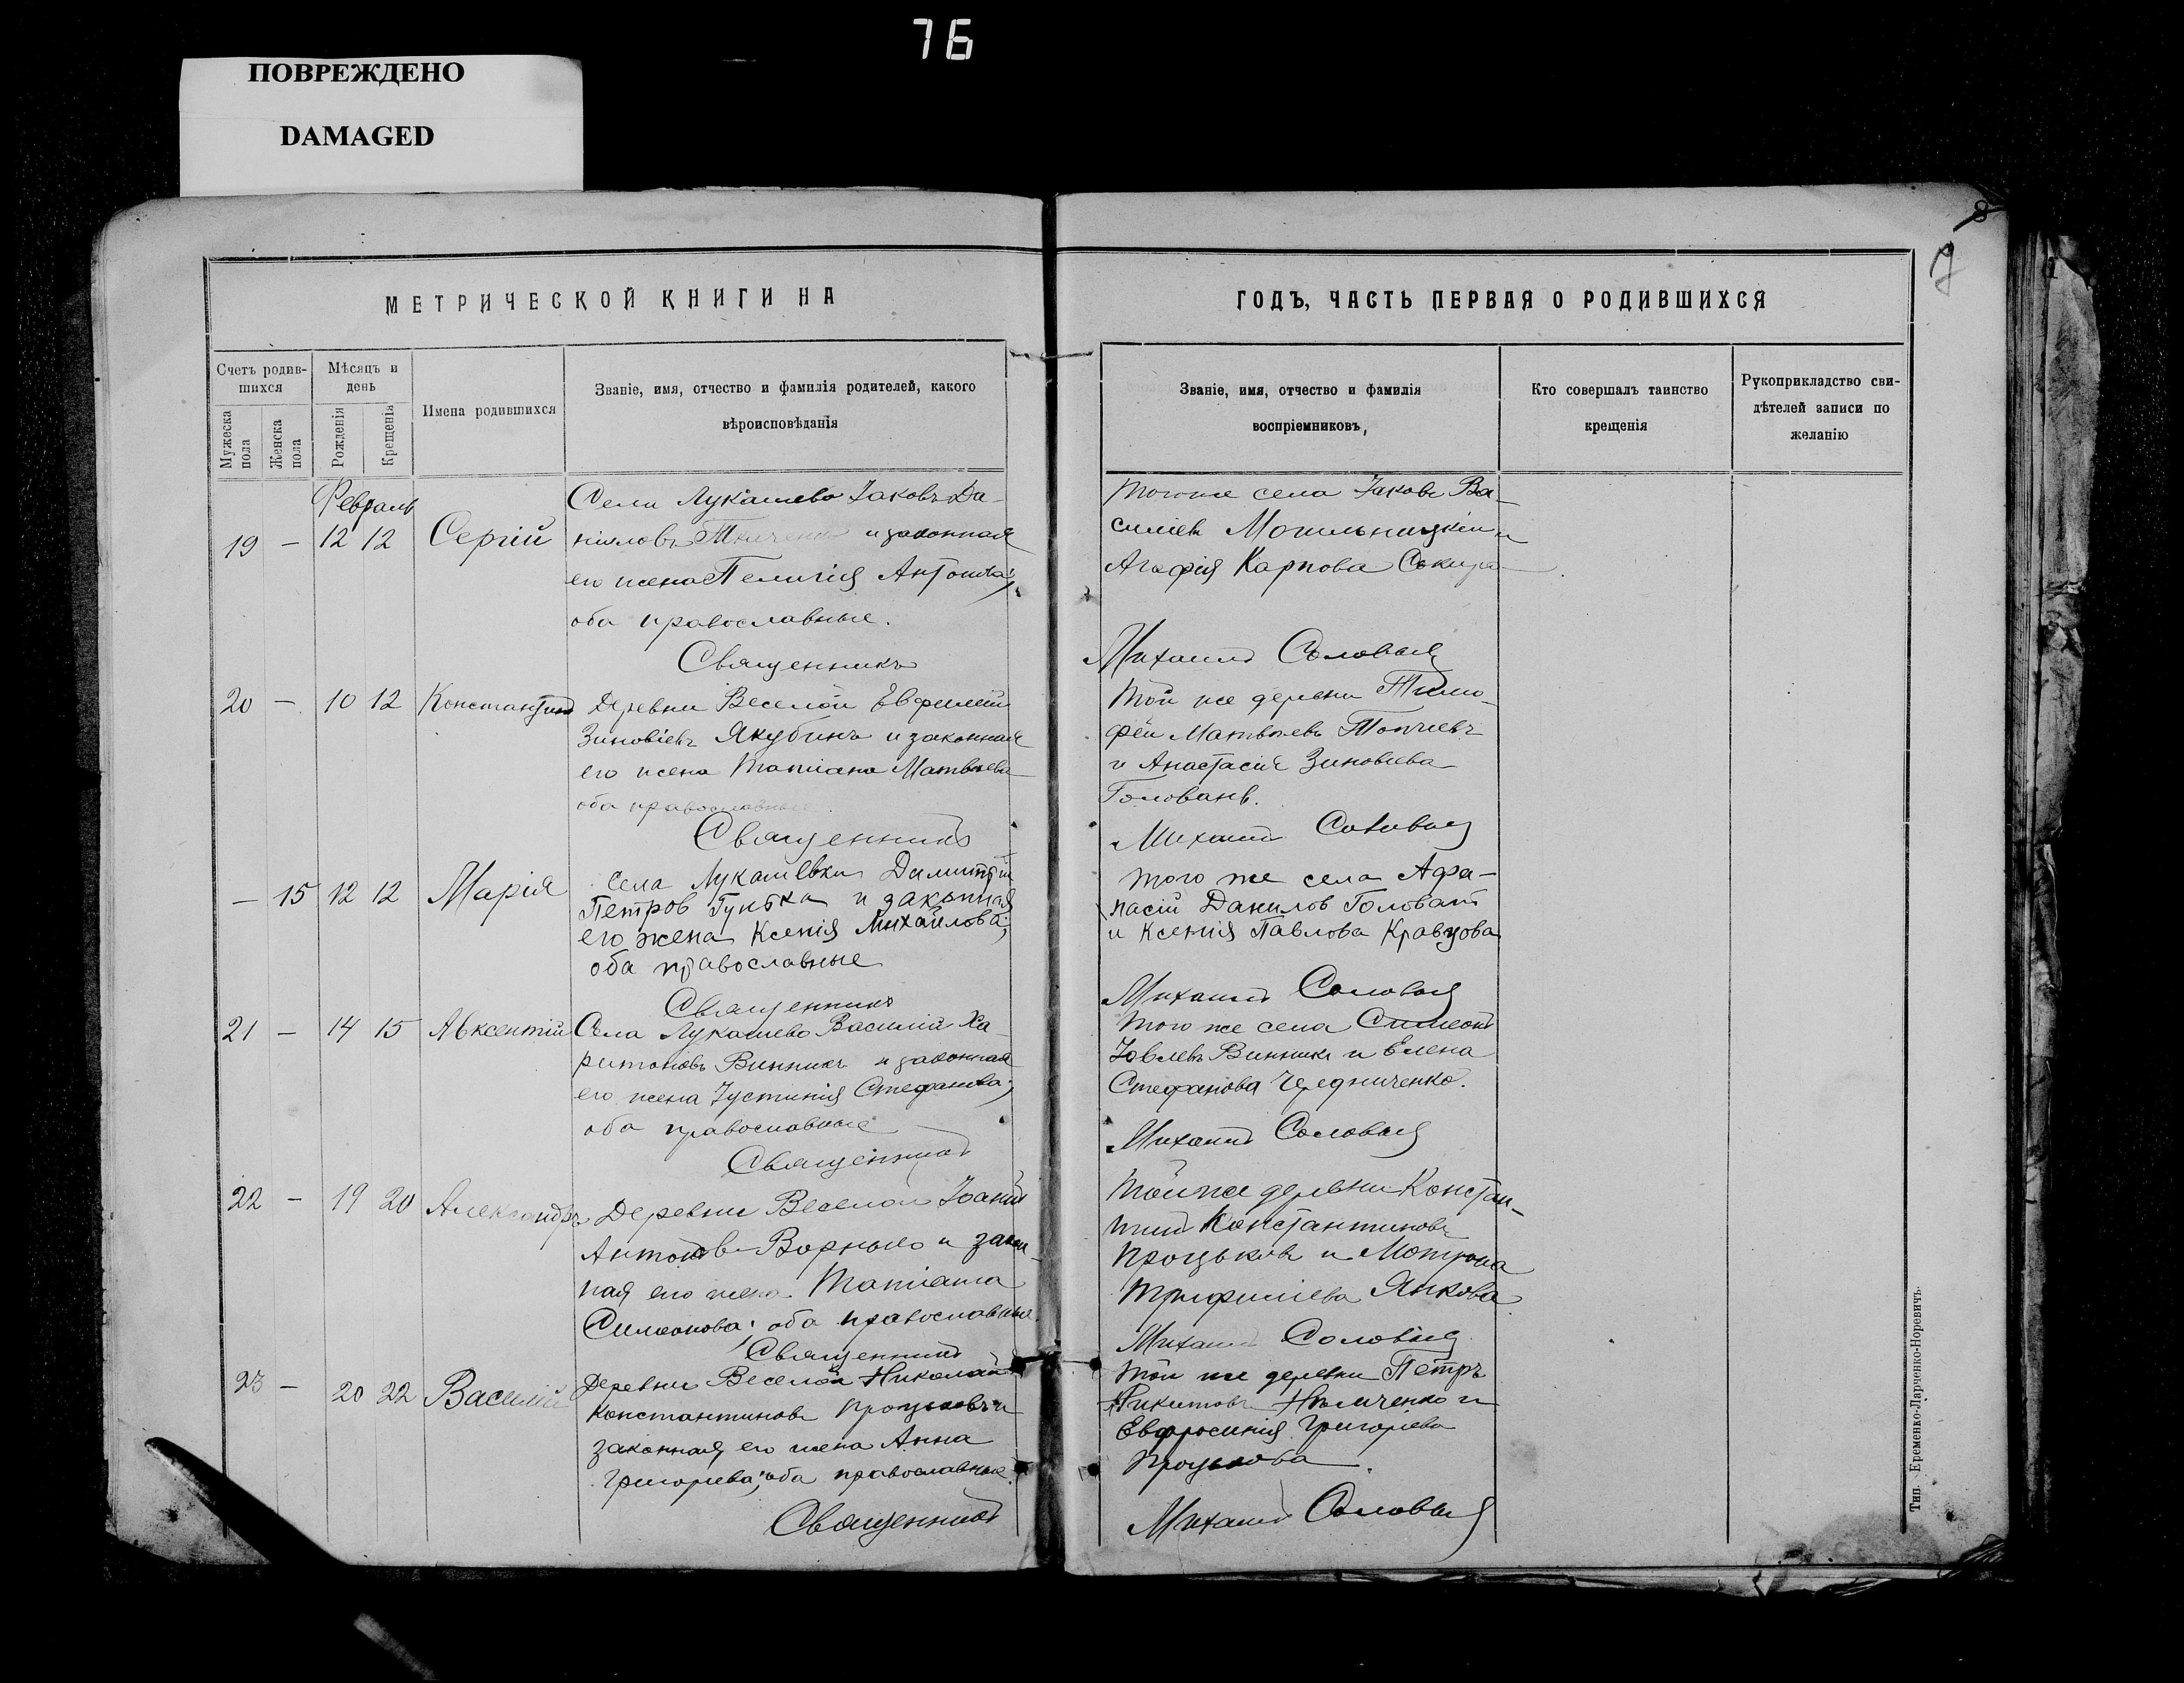 76
ПОВРЕЖДЕНО
DAMAGED
8
7
МЕТРИЧЕСКОЙ КНИГИ НА
ГОДЪ, ЧАСТЬ ПЕРВАЯ О РОДИВШИХСЯ
Счетъ родив-
шихся
Мужеска пола
Женска пола
Мѣсяцъ и
день
Рожденія
Крещенія
Имена родившихся
Званіе, имя, отчество и фамилія родителей, какого
вѣроисповѣданія
Званіе, имя, отчество и фамилія
воспріемниковъ,
Кто совершалъ таинство
крещенія
Рукоприкладство сви-
дѣтелей записи по
желанію
Февраль
19 — 12 12 Сергій
Села Лукашево Іаковъ Да-
ніиловъ Ткаченко и законная
его жена Пелагія Антонова;
оба православные.
Священникъ
Того же села Іаковъ Ва-
силіев Могильницкій и
Агафія Карпова Секира
Михаилъ Соловьев
20 — 10 12 Константинъ
Деревни Веселой Евфимій
Зиновіевъ Якубинъ и законная
его жена Татіана Матвѣева
оба православные.
Священникъ
Той же деревни Тимо-
фей Матвѣевъ Топчіевъ
и Анастасія Зиновіева
Головань.
Михаилъ Соловьев
— 15 12 12 Марія
Села Лукашевки Димитрій
Петров Гунька и законная
его жена Ксенія Михайлова;
оба православные
Священникъ
Того же села Афа-
насій Данилов Головатъ
и Ксенія Павлова Кравцова
Михаилъ Соловьев
21 — 14 15 Авксентій
Села Лукашево Василій Ха-
ритоновъ Винникъ и законная
его жена Іустинія Стефанова;
оба православные
Священникъ
Того же села Симеонъ
Іовлевъ Винникъ и Елена
Стефанова Чередниченко.
Михаилъ Соловьев
22 — 19 20 Александръ
Деревни Веселой Іоаннъ
Антоновъ и закон-
ная его жена Татіана
Симеонова; оба православные.
Священникъ
Той же деревни Констан-
тинъ Константиновъ
Процьковъ и Мотрона
Трифиліева Янкова
Михаилъ Соловьев
23 — 20 22 Василій
Деревни Веселой Николай
Константиновъ Процьковъ и
законная его жена Анна
Григорьева; оба православные.
Священникъ
Той же деревни Петръ
Никитовъ и
Евфросинія Григорьева
Процькова.
Михаилъ Соловьев
Тип. Еременко-Ларченко-Норевичъ.